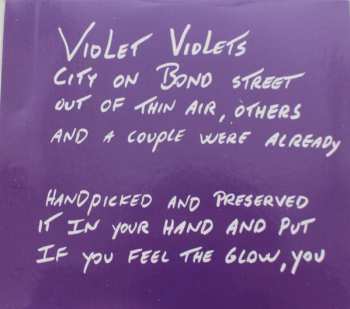 VIOLET VIOLETS
CITY ON BOND STREET
OUT OF THIN AIR, OTHERS
AND A COUPLE WERE ALREADY
HANDPICKED AND PRESERVED
IT IN YOUR HAND AND PUT
IF YOU FEEL THE GLOW, YOU